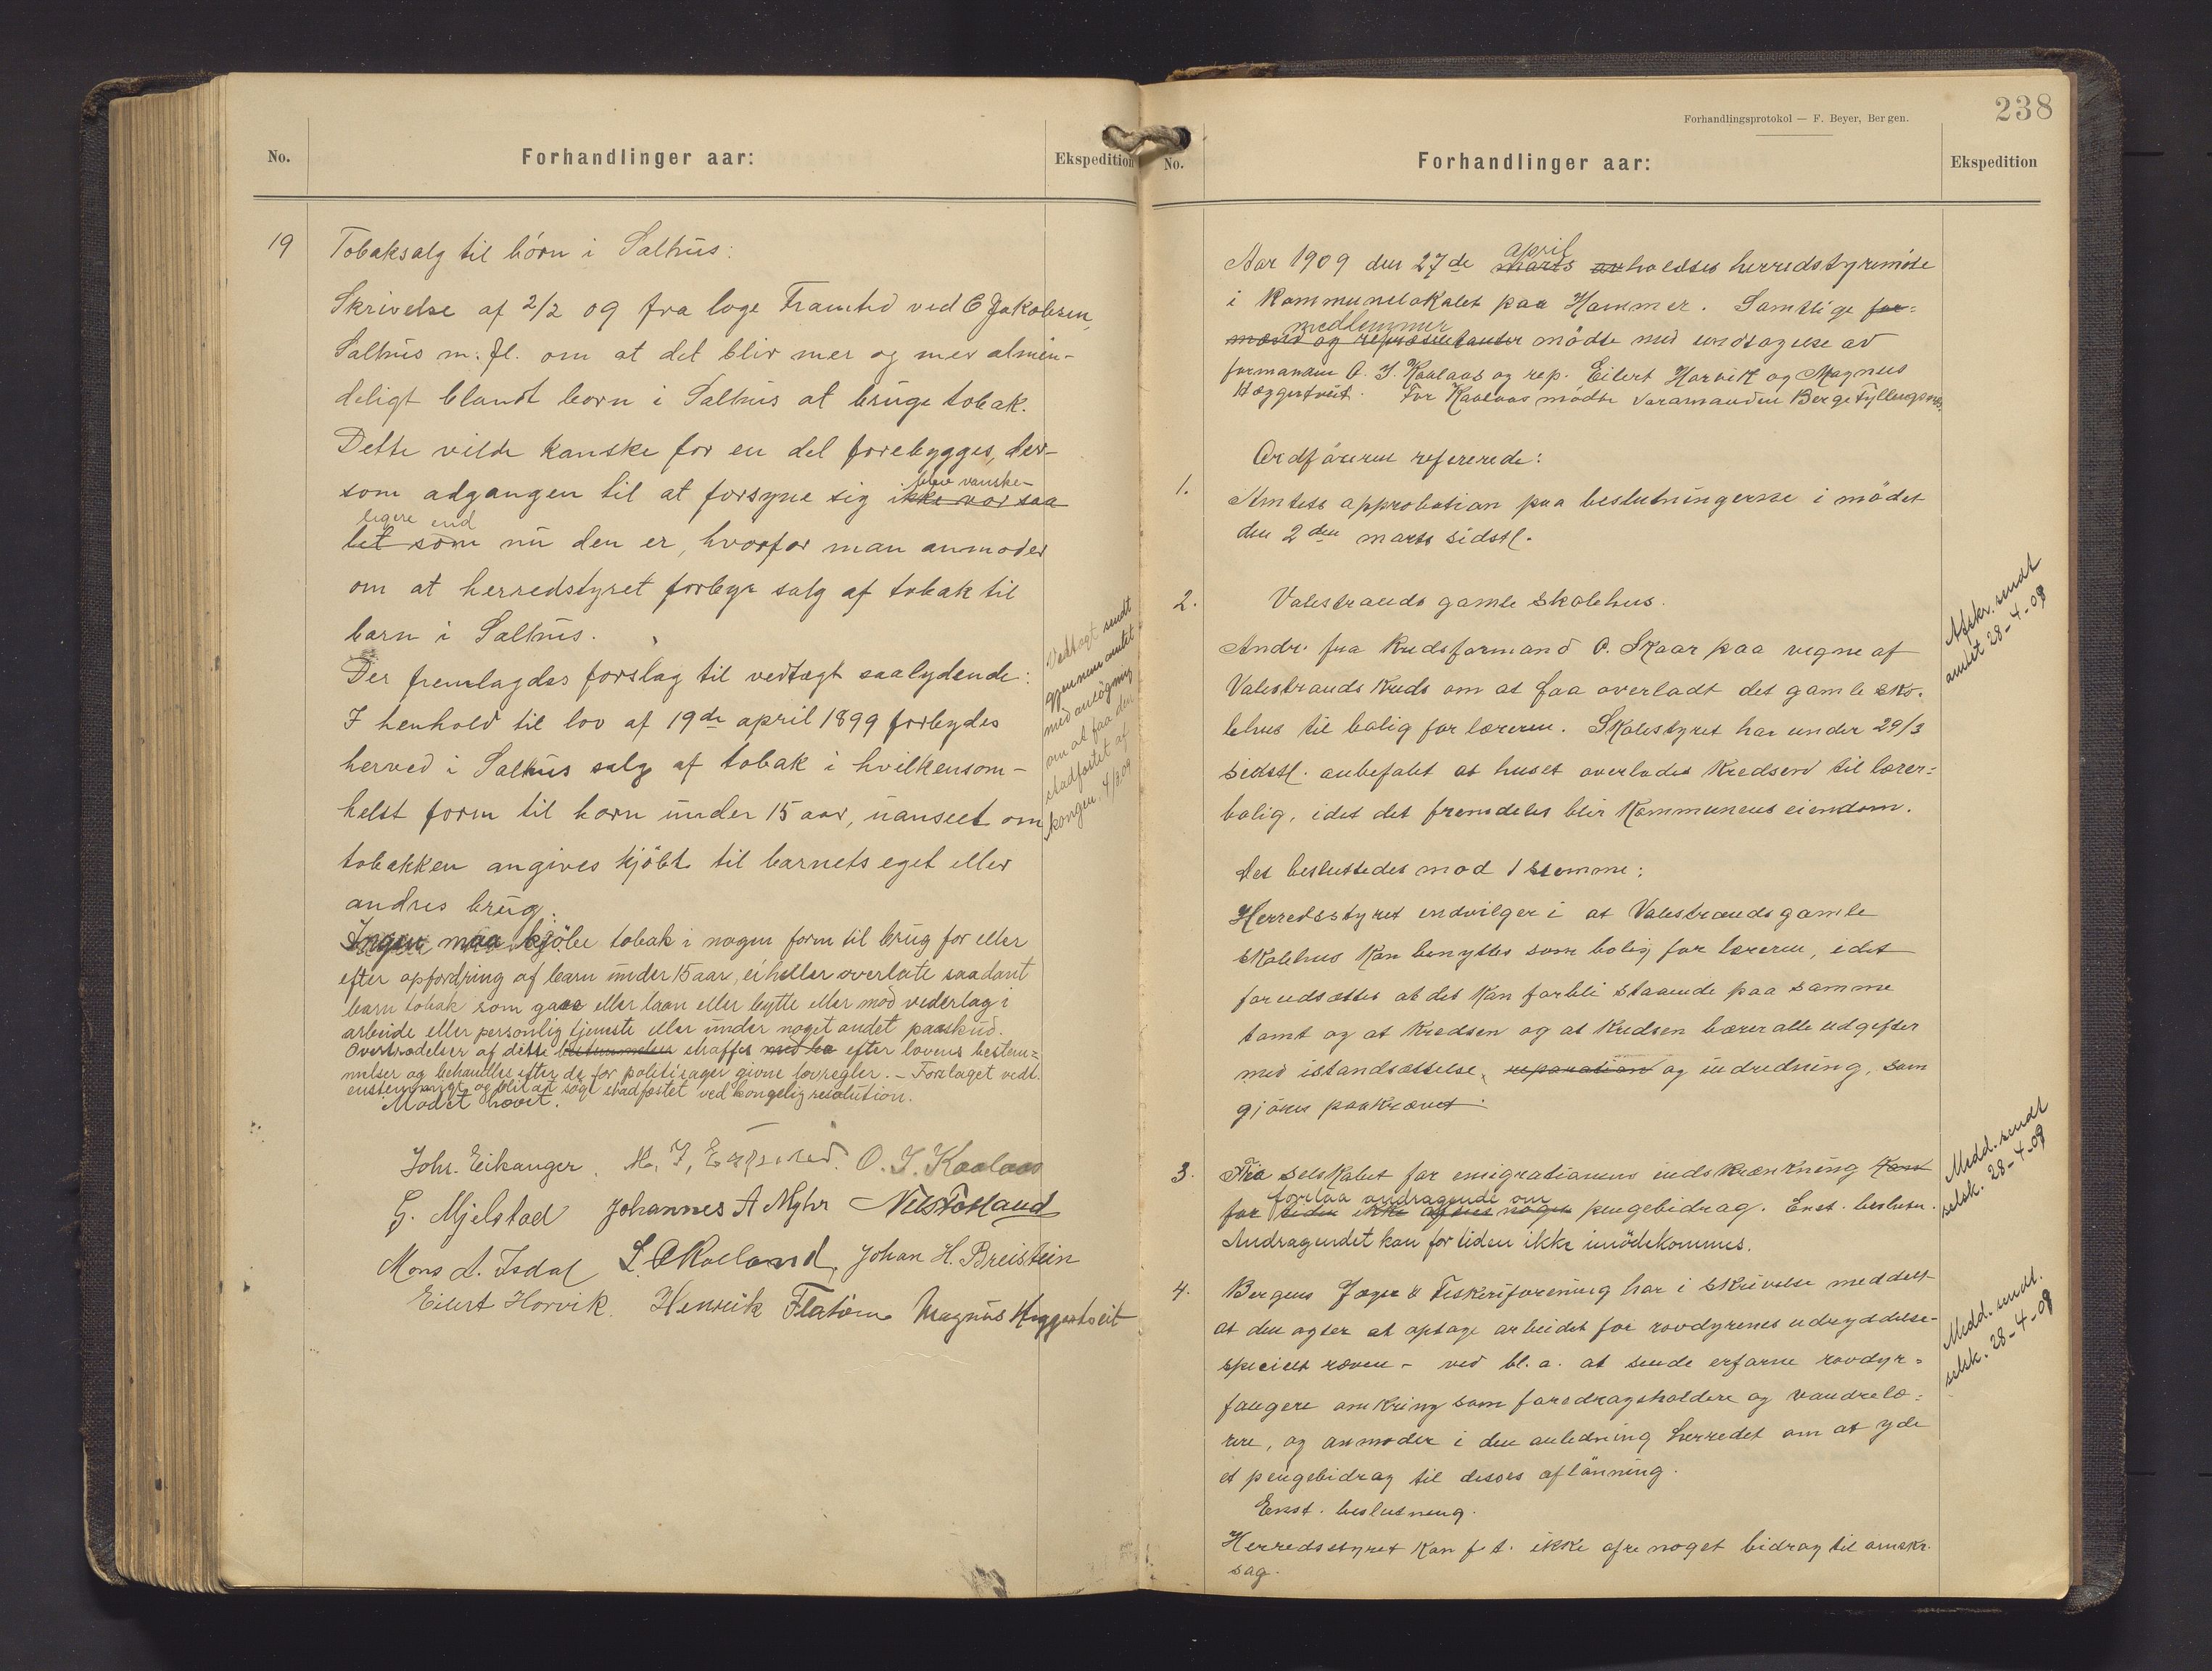 No.
Forhandlinger aar:
Ekspedition
19
Tobaksalg til börn i Salhus:
Skrivelse af 2/2 09 fra loge Framtid ved C Jakobsen,
Salhus m. fl. om at det blir mer og mer almin-
deligt blandt born i Salhus at bruge tobak.
Dette vilde kanske for en del forebygges, der-
blev vanske-
som adgangen til at forsyne sig ikke var saa
ligere end
let som nu den er, hvorfor man anmoder
om at herredstyret forbyr salg af tobak til
barn i Salhus.
Der fremlagdes forslag til vedtægt saalydende:
I henhold til lov af 19de april 1899 forbydes
herved i Salhus salg af tobak i hvilkensom-
helst form til barn under 15 aar, uanseet om
tobakken angives kjöbt til barnets eget eller
andres brug.
Ingen maa kjöbe tobak i nogen form til brug for eller
efter opfordring af barn under 15 aar, ei heller overlate saadant
barn tobak som gave eller laan eller bytte eller mod vederlag i
arbeide eller personlig tjeneste eller under noget andet paaskud.
Overtrædelser af dette bestemmelser straffes med bø efter lovens bestem=
melser og behandles efter de for politisager givne lovregler. - Forslaget vedt.
enstemmigt og blir at søge stadfæstet ved kongelig resolution.
Mødet hævet.
Vedtægt sendt
gjennem amtet
med ansögning
om at faa den
stadfæstet af
kongen. 4/3 09
Johs. Eikanger. M. J. O. J. Kaalaas
G. Mjelstad Johannes A Myhr Nils Tolland
Mons L. Isdal Johan H. Breistein
Eilert Horvik. Henrik Flatöen Magnus Heggertveit
238
Forhandlingsprotokol — F. Beyer, Bergen.
No.
Forhandlinger aar:
Ekspedition
april
Aar 1909 den 27de marts avholdtes herredstyremöte
i kommunelokalet paa Hammer. Samtlige for=
medlemmer
mænd og repræsentanter mödte med undtagelse av
formanden O. J. Kaalaas og rep. Eilert Horvik og Magnus
Hæggertveit. For Kaalaas mödte varamanden Berge Fyllingsnes.
Ordföreren refererede:
1.
Amtets approbation paa beslutningerne i mödet
den 2den marts sidstl.
2.
Valestrands gamle skolehus.
Andr. fra kredsformand O. Skaar paa vegne af
Valestrands kreds om at faa overladt det gamle sko-
lehus til bolig for læreren. Skolestyret har under 29/3
sidstl. anbefalet at huset overlades kredsen til lærer=
bolig, idet det fremdeles blir kommunens eiendom.
Det besluttedes mod 1 stemme:
Herredsstyret indvilger i at Valestrands gamle
skolehus kan benyttes som bolig for læreren, idet
forudsættes at det kan forbli staaende paa samme
tomt og at kredsen og at kredsen bærer alle udgifter
med istandsættelse, reparation og indredning, som
gjöres paakrævet.
Afskr. sendt
amtet 28-4-09
3.
Fra selskabet for emigrationens indskrænkning kan
forelaa andragende om
for tiden ikke afsees nogen pengebidrag. Enst. beslutn.
Andragendet kan for tiden ikke imödekommes.
Medd. sendt
selsk. 28-4-09
4.
Bergens Jæger & Fiskeriforening har i skrivelse meddelt
at den agter at optage arbeidet for rovdyrenes udryddelse-
specielt ræven - ved bl. a. at sende erfarne rovdyr=
fangere omkring som foredragsholdere og vandrelæ=
rere, og anmoder i den anledning herredet om at yde
et pengebidrag til disses aflönning.
Enst. beslutning.
Herredsstyret kan f. t. ikke ofre noget bidrag til omskr.
sag.
Medd. sendt.
selsk. 28-4-09